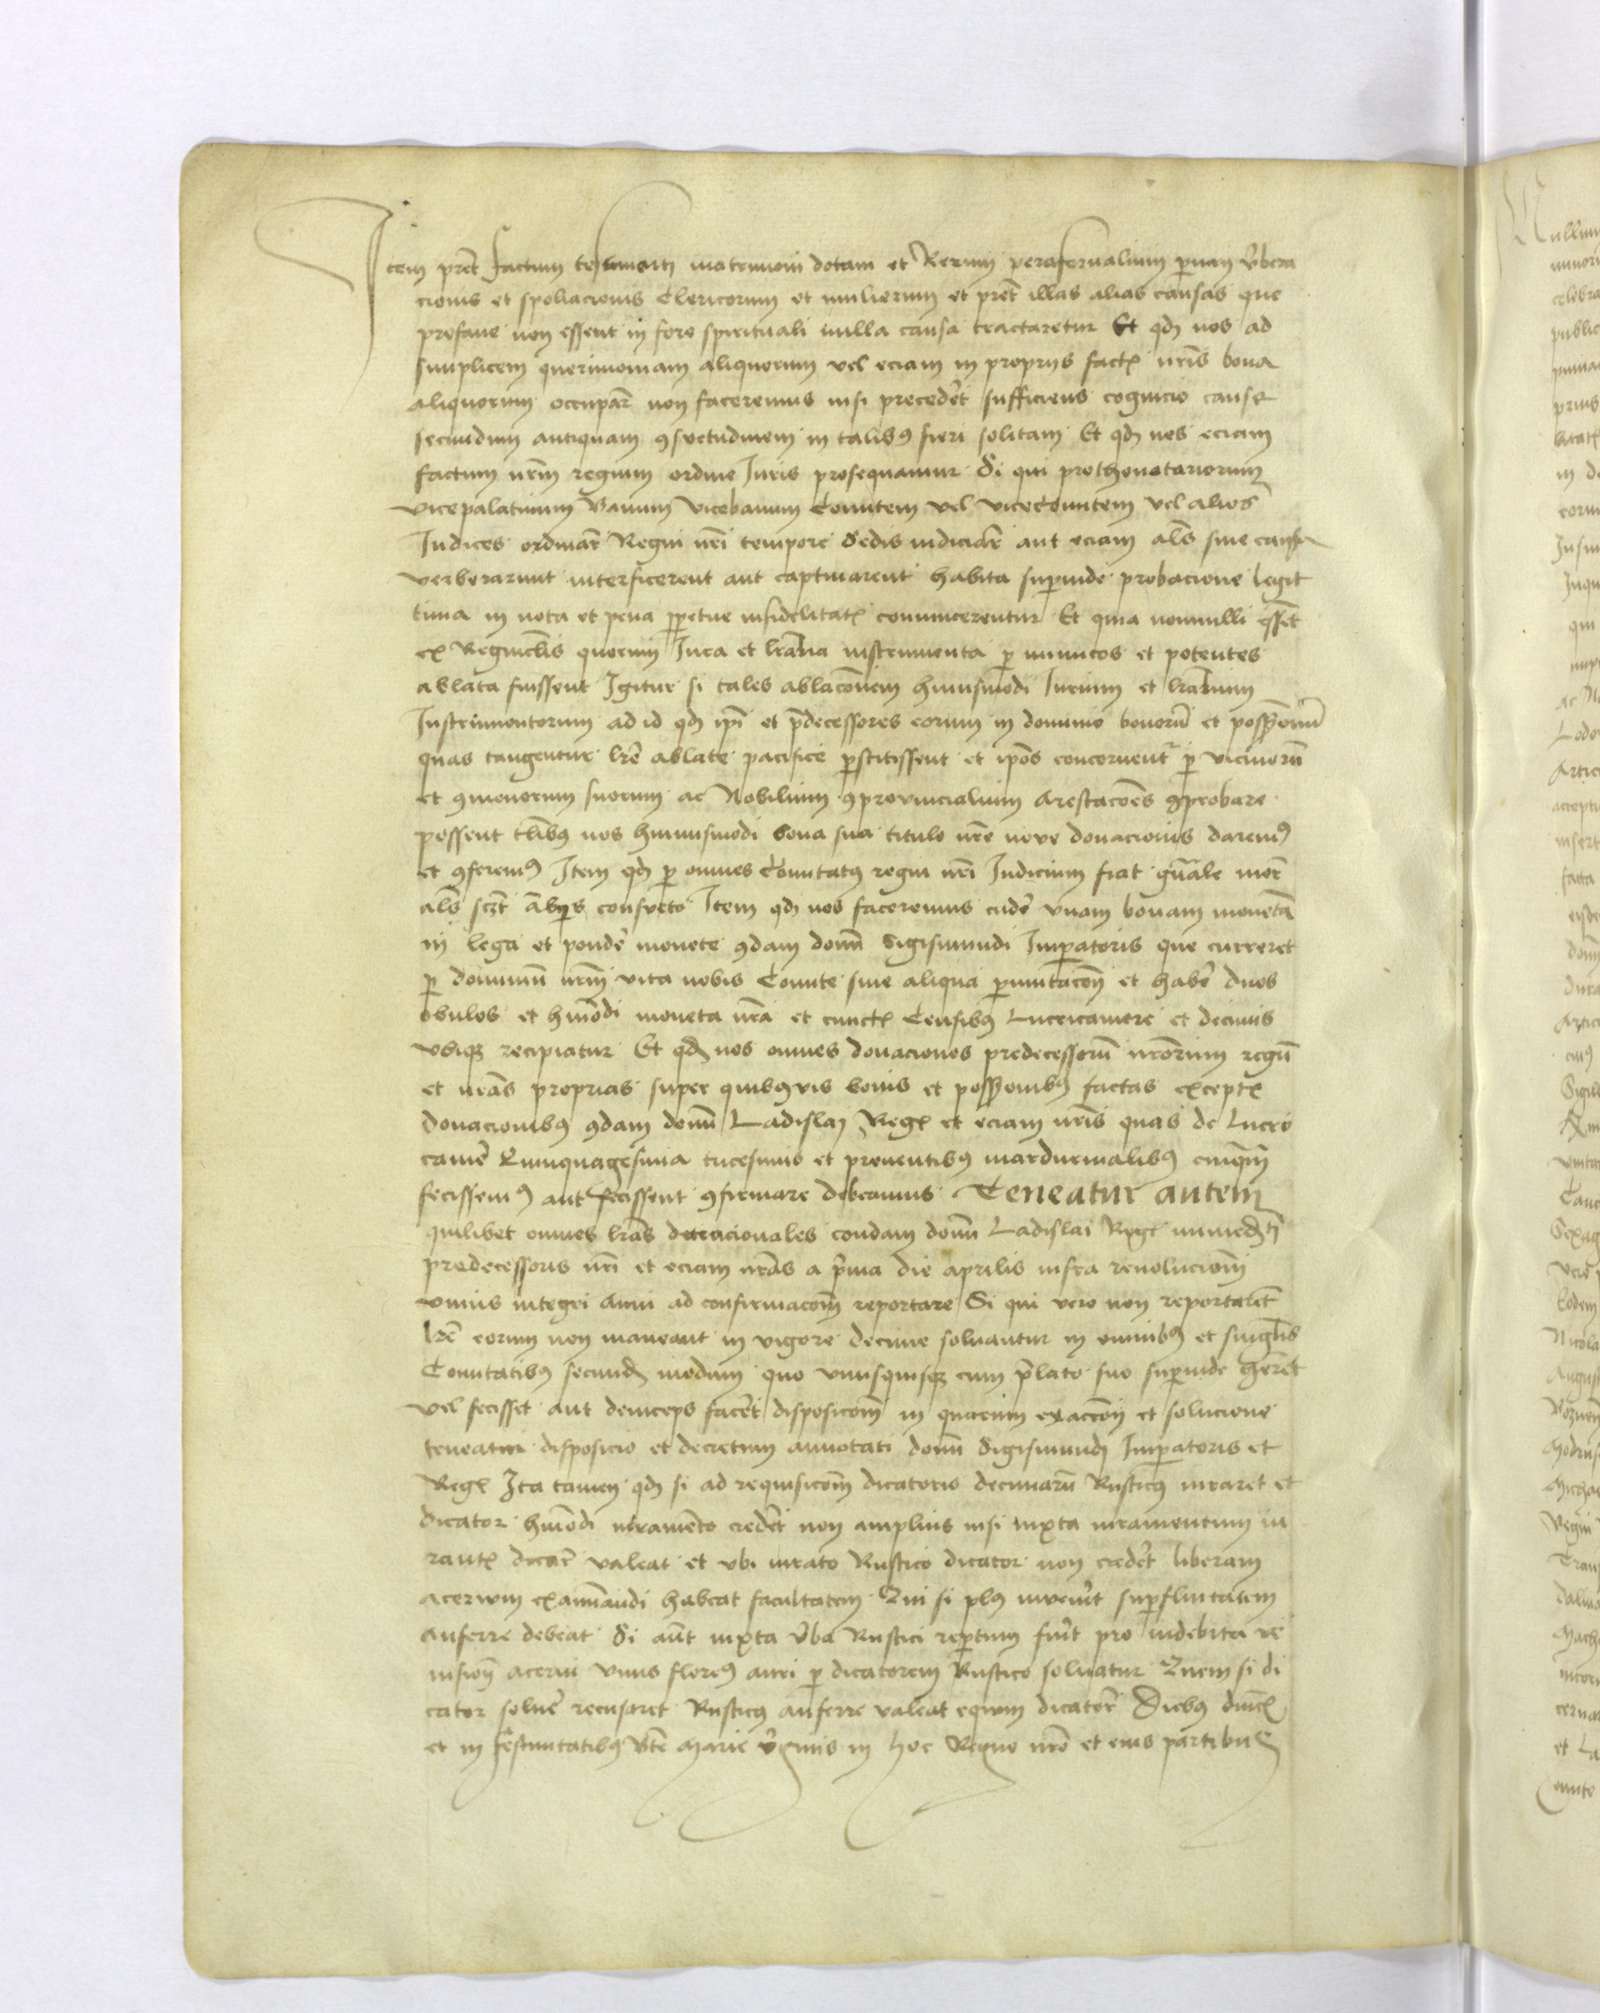 Item pret factum testamenti matrimonii dotam et Rerum parafernalium priuam vbera
cionis et spoliacionis Clericorum et mulierum et pret illas alias causas que
profane non essent in foro spirituali nulla causa tractaretur Et qd nos ad
simplicem querimoniam aliquorum vel eciam in proprys fact nris bona
aliquorum occupar non faceremus nisi precedet sufficiens cognicio cause
secundum antiquam 9suetudinem in talib9 fieri solitam Et qd nos eciam
factum nrm regium ordine Iuris prosequamur Si qui prothonotariorum
vicepalatinum Banum vicebanum Comitem vel vicecomitem vel alios
Iudices ordinar Regni nri tempore Sedis iudiciar aut eciam als sine causa
verberarunt interficerent aut captiuarent habita supinde probacione legit
tima in nota et pena ppetue infidelitat conuincerentur Et quia nonnulli essent
ex Regnicolis quorum Iura et lralia instrumenta p inimicos et potentes
ablata fuissent Igitur si tales ablacoem huiusmodi Iurium et lralium
Instrumentorum ad id qd ipi et pdecessores eorum in dominio bonoru et possessionu
quas tangentur lre ablate pacifice pstitissent et ipos concernent p vicinoru
et 9metaneorum suorum ac Nobilium 9provincialium Atestacoes 9probare
possent tlib9 nos huiusmodi bona sua titulo nre noue donacionis darem9
et 9ferem9 Item qd p omnes Comitatus regni nri Iudicium fiat gnale more
als sczt abqs consueto Item qd nos faceremus cuder vnam bonam moneta
in lega et ponder monete 9dam domi Sigismundi Imperatoris que curreret
p dominu nrm vita nobis Comite sine aliqua pmutacoe et haber duos
obulos et hmodi moneta nra et cunct Censib9 Lucricamere et decimis
vbiq recipiatur Et qd nos omnes donaciones predecessoru nrorum regu
et nras proprias super quib9vis bonis et possessionib9 factas except
donacionib9 9dam domi Ladislai Reg et eciam nris quas de lucro
camere Quinquagesima tricesimis et prouentib9 mardurinalib9 cuiqm
fecissem9 aut fecissent 9firmare debeamus Teneatur autem
quilibet omnes lras donacionales condam domi Ladislai Reg immediati
predecessoris nri et eciam nras a prima die aprilis infra reuolucionem
vnius integri anni ad confirmacom reportare Si qui vero non reportaret
lre eorum non maneant in vigore decime soluantur in omnib9 et singlis
Comitatib9 secund modum quo vnusquisq cum plato suo supinde heret
vel fecisset aut deinceps facet disposicom in quarum exaccoe et solucione
teneatur disposicio et decretum annotati domi Sigismundi Imperatoris et
Reg Ita tamen qd si ad requisicom dicatoris decimaru Rustic9 iuraret et
dicator hmodi iuramento credet non amplius nisi iuxta iuramentum iu
rant dicar valeat et vbi iurato Rustico dicator non credet liberam
acerum examinandi habeat facultatem Qui si pl9 inuenit supfluitatem
auferre debeat Si aut iuxta vba Rustici reptum fuit pro indebita re
uision acerui vnus floren9 auri p dicatorem Rustico soluatur Quem si di
cator soluer recusaret Rustic9 auferre valeat equum dicator Dieb9 dnic
et in festiuitatib9 bte Marie vginis in hoc Regno nro et eius partibus